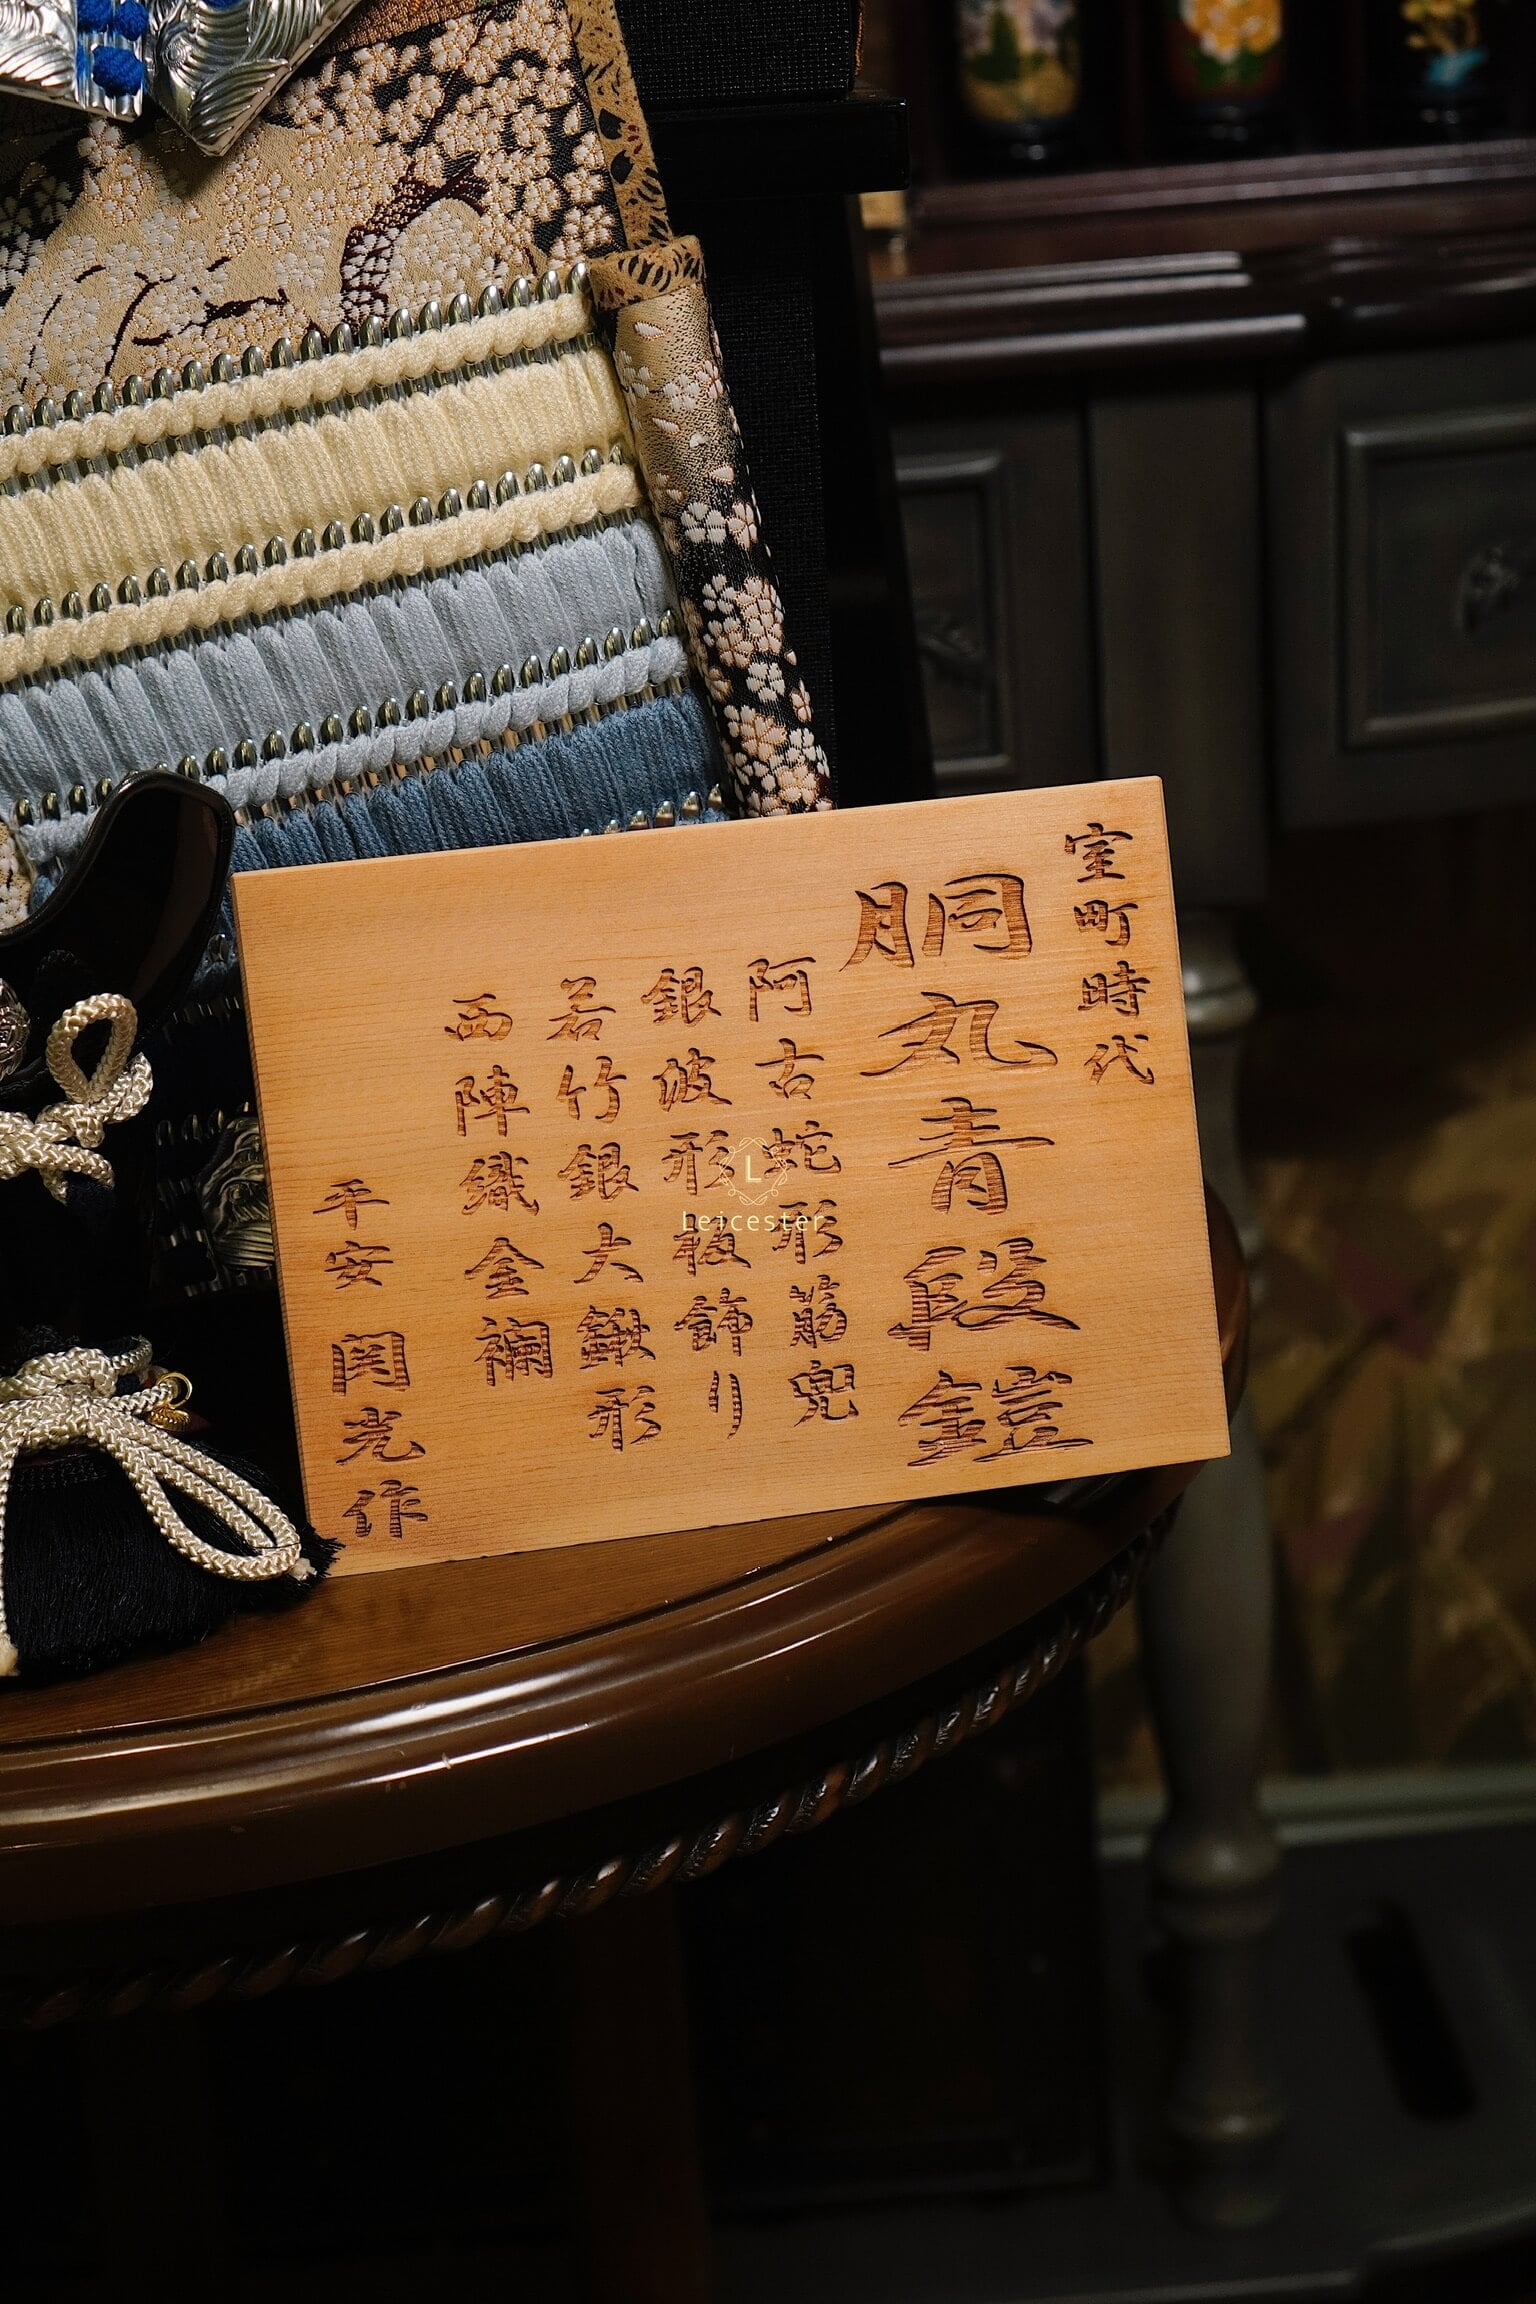 室町時代
胴丸青段鎧
阿古蛇形筋兜
銀波形板飾り
若竹銀大鍬形
西陣織金襴
平安 関光作
L
Leicester